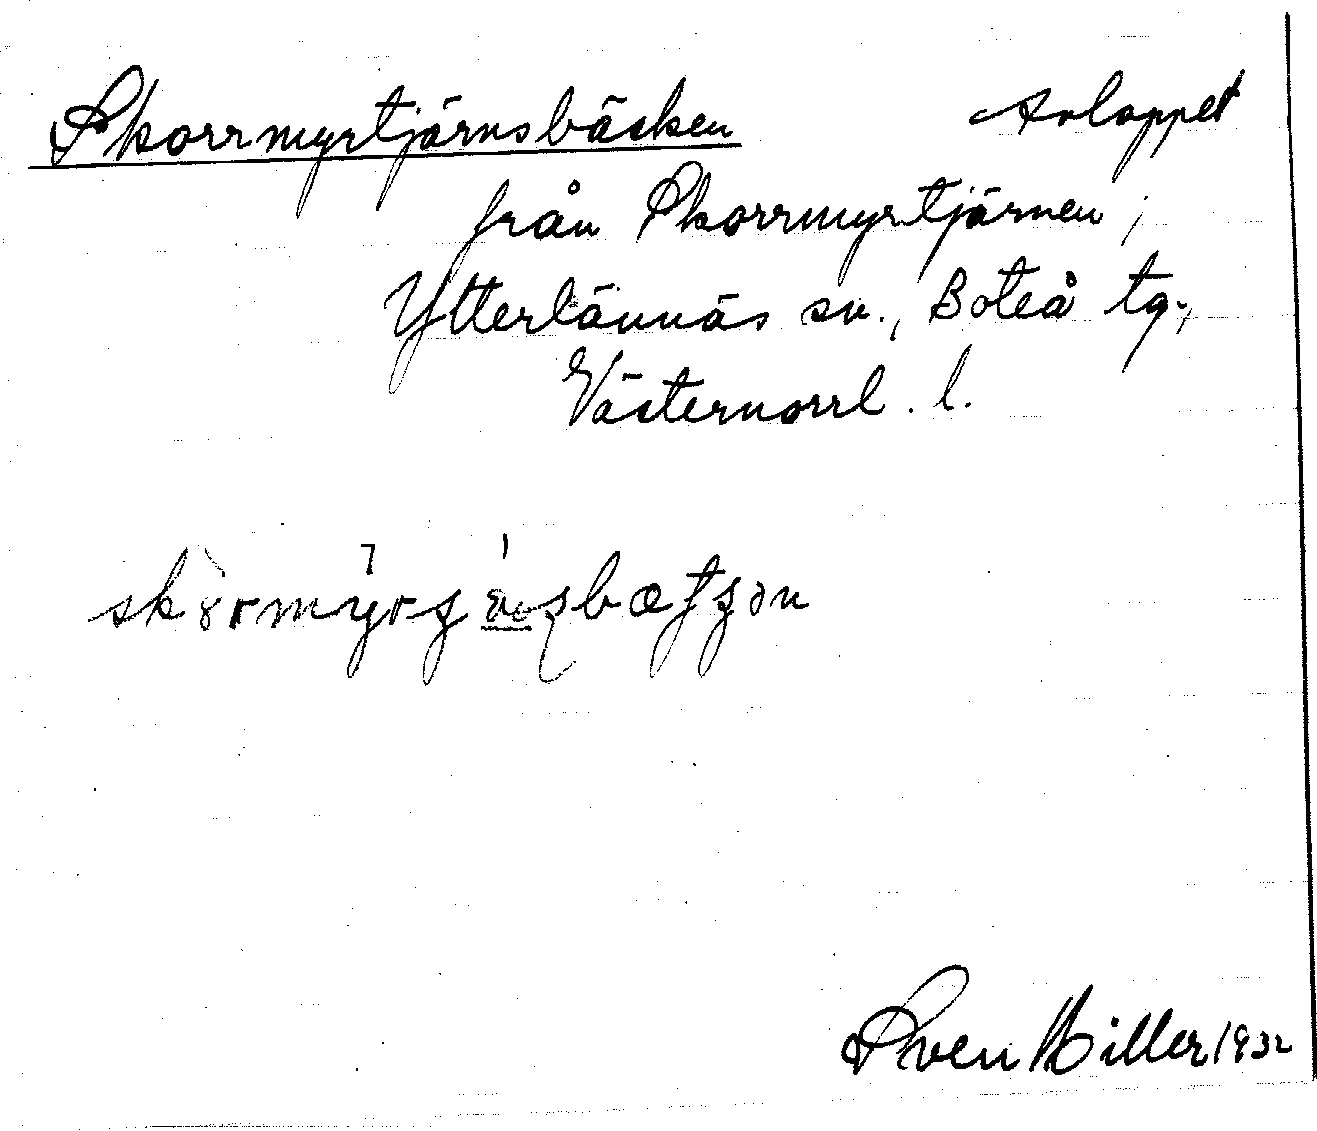 Skorrmyrtjärnsbäcken Avloppet
från Skorrmyrtjärnen;
Ytterlännäs sn., Boteå tg.,
Västernorrl. l.
Sven Hiller 1932